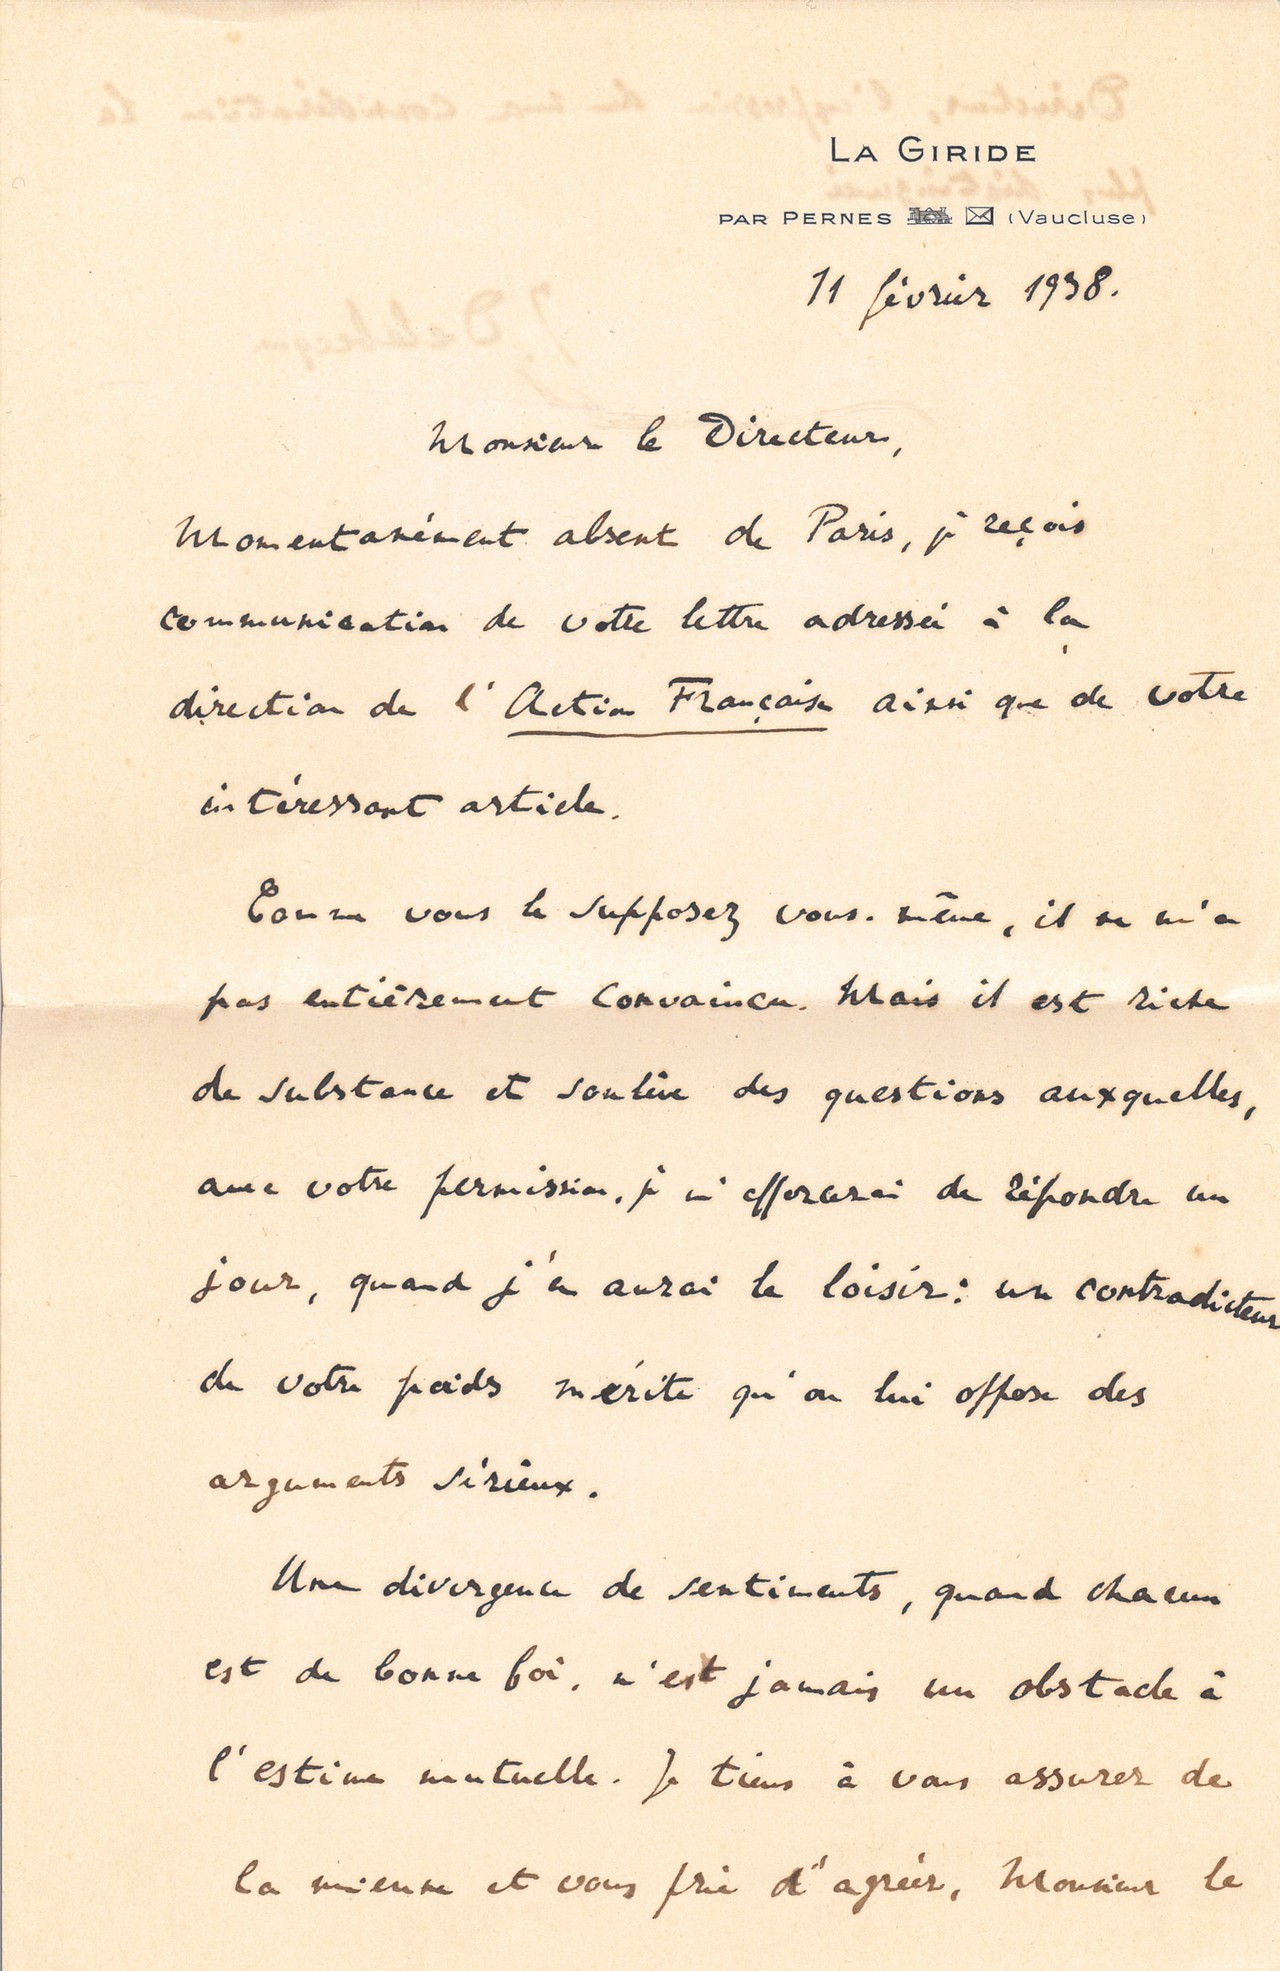 LA GIRIDE
PAR PERNES (Vaucluse)
11 février 1938.
Monsieur le Directeur,
Momentanément absent de Paris, je reçois
communication de votre lettre adressée à la
direction de l'Action Française ainsi que de votre
intéressant article.
Comme vous le supposez vous-même, il ne m'a
pas entièrement convaincu. Mais il est riche
de substance et soulève des questions auxquelles,
avec votre permission, je m'efforcerai de répondre un
jour, quand j'en aurai le loisir : un contradicteur
de votre poids mérite qu'on lui oppose des
arguments sérieux.
Une divergence de sentiments, quand chacun
est de bonne foi, n'est jamais un obstacle à
l'estime mutuelle. Je tiens à vous assurer de
la mienne et vous prie d'agréer, Monsieur le
Directeur, l'expression de ma considération la
plus distinguée
J. Delebecque